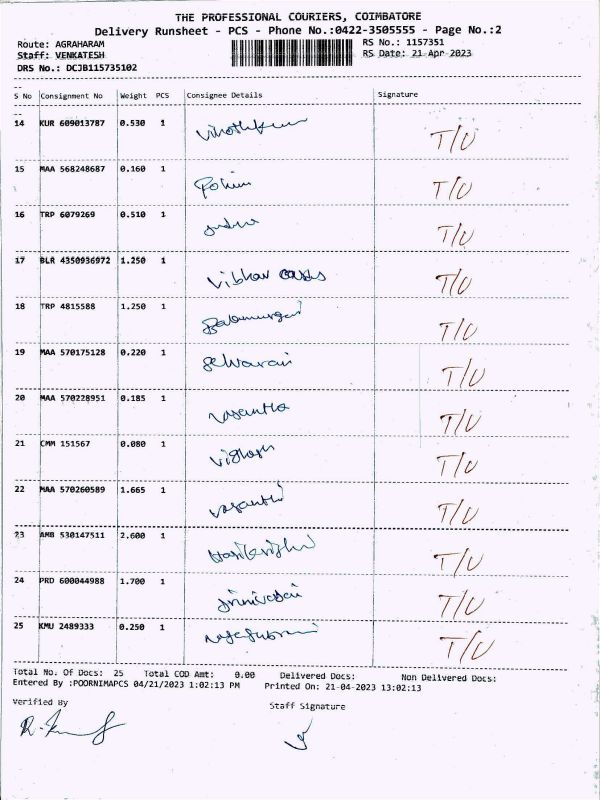 THE PROFESSIONAL COURIERS, COIMBATORE
Delivery Runsheet - PCS - Phone No.:0422-3505555 - Page No.:2
Route: AGRAHARAM RS No.: 1157351
Staff: VENKATESH RS Date: 21 Apr 2023
DRS No.: DCJB115735102
S No Consignment No Weight PCS Consignee Details Signature
14 KUR 609013787 0.530 1 T/U
15 MAA 568248687 0.160 1 T/U
16 TRP 6079269 0.510 1 T/U
17 BLR 4350936972 1.250 1 Vibhav T/U
18 TRP 4815588 1.250 1 T/U
19 MAA 570175128 0.220 1 Selvaraj T/U
20 MAA 570228951 0.185 1 Vasantha T/U
21 CMM 151567 0.080 1 T/U
22 MAA 570260589 1.665 1 T/U
23 AMB 530147511 2.600 1 T/U
24 PRD 600044988 1.700 1 T/U
25 KMU 2489333 0.250 1 T/U
Total No. Of Docs: 25 Total COD Amt: 0.00 Delivered Docs: Non Delivered Docs:
Entered By :POORNIMAPCS 04/21/2023 1:02:13 PM Printed On: 21-04-2023 13:02:13
Verified By Staff Signature